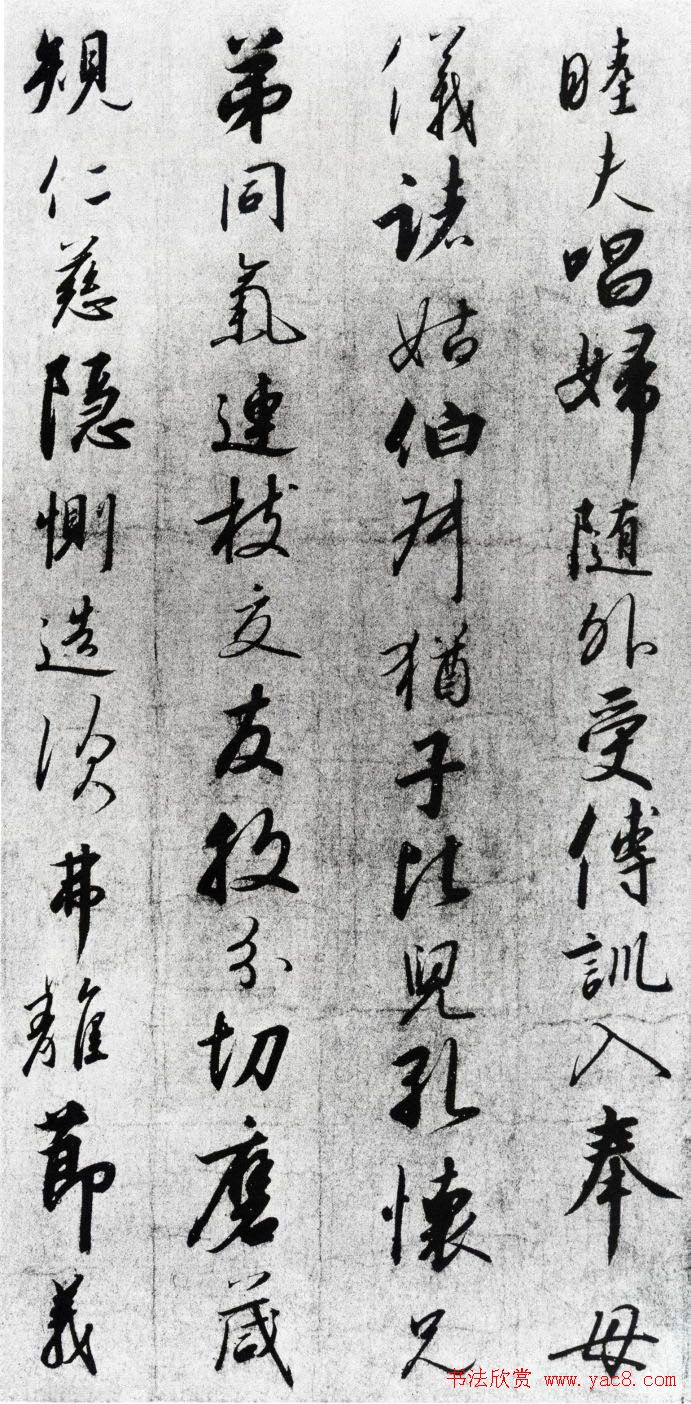 睦夫唱婦随外受傅訓入奉母
儀諸姑伯叔猶子比兒孔懷兄
弟同氣連枝交友投分切磨箴
規仁慈隱惻造次弗離節義
书法欣赏 www.yac8.com